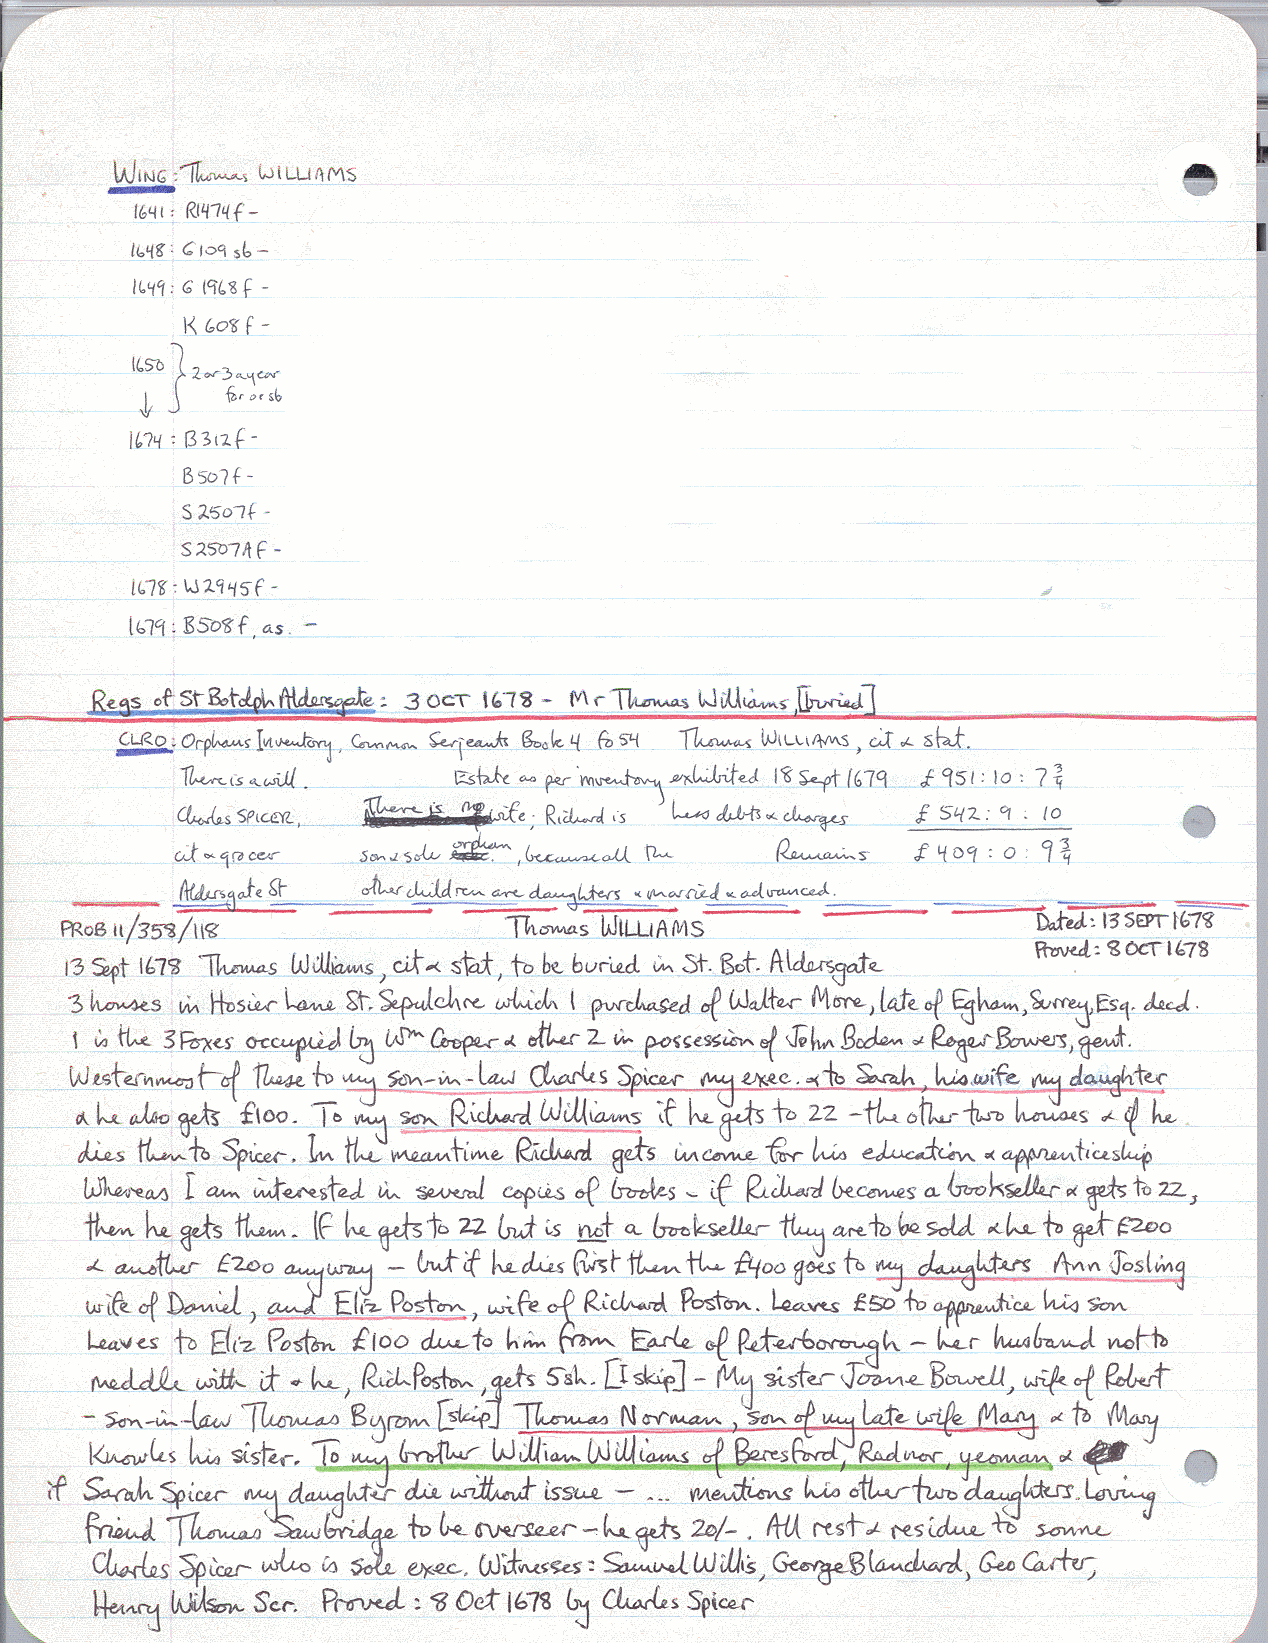 WING: Thomas WILLIAMS
1641: R1474f -
1648: G109 sb -
1649: G1968f -
K608f -
1650 } 2 or 3 a year
↓ for or sb
1674: B312f -
B507f -
S2507f -
S2507Af -
1678: W2945f -
1679: B508f, as. -
Regs of St Botolph Aldersgate: 3 OCT 1678 - Mr Thomas Williams, [buried]
CLRO: Orphans Inventory, Common Serjeants Book 4 fo 54 Thomas WILLIAMS, cit & stat.
There is a will. Estate as per inventory exhibited 18 Sept 1679 £951:10:7¾
Charles SPICER, wife; Richard is Less debts & charges £542:9:10
cit & grocer son & sole orphan, because all the Remains £409:0:9¾
Aldersgate St other children are daughters & married & advanced.
PROB 11/358/118 Thomas WILLIAMS Dated: 13 SEPT 1678
Proved: 8 OCT 1678
13 Sept 1678 Thomas Williams, cit & stat, to be buried in St. Bot. Aldersgate
3 houses in Hosier Lane St. Sepulchre which I purchased of Walter More, late of Egham, Surrey, Esq. decd.
1 is the 3 Foxes occupied by Wm Cooper & other 2 in possession of John Boden & Roger Bowers, gent.
Westernmost of these to my son-in-law Charles Spicer my exec. & to Sarah, his wife my daughter
& he also gets £100. To my son Richard Williams if he gets to 22 - the other two houses & if he
dies then to Spicer. In the meantime Richard gets income for his education & apprenticeship
Whereas I am interested in several copies of books - if Richard becomes a bookseller & gets to 22,
then he gets them. If he gets to 22 but is not a bookseller they are to be sold & he to get £200
& another £200 anyway - but if he dies first then the £400 goes to my daughters Ann Josling
wife of Daniel, and Eliz Poston, wife of Richard Poston. Leaves £50 to apprentice his son
Leaves to Eliz Poston £100 due to him from Earle of Peterborough - her husband not to
meddle with it & he, Rich Poston, gets 5sh. [I skip] - My sister Joane Bowell, wife of Robert
- son-in-law Thomas Byrom [skip] Thomas Norman, son of my late wife Mary & to Mary
Knowles his sister. To my brother William Williams of Beresford, Radnor, yeoman &
if Sarah Spicer my daughter die without issue - ... mentions his other two daughters. Loving
friend Thomas Sawbridge to be overseer - he gets 20/-. All rest & residue to sonne
Charles Spicer who is sole exec. Witnesses: Samuel Willis, George Blanchard, Geo Carter,
Henry Wilson Scr. Proved: 8 Oct 1678 by Charles Spicer